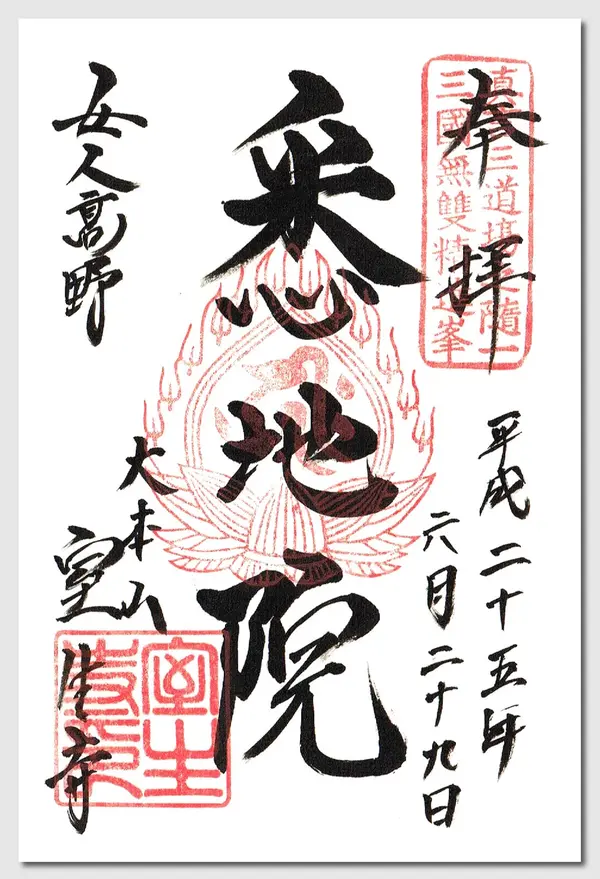 奉拝
真言三道場之隨一
三國無雙精進峯
平成二十五年
六月二十九日
悉地院
女人高野
大本山
室生寺
室生